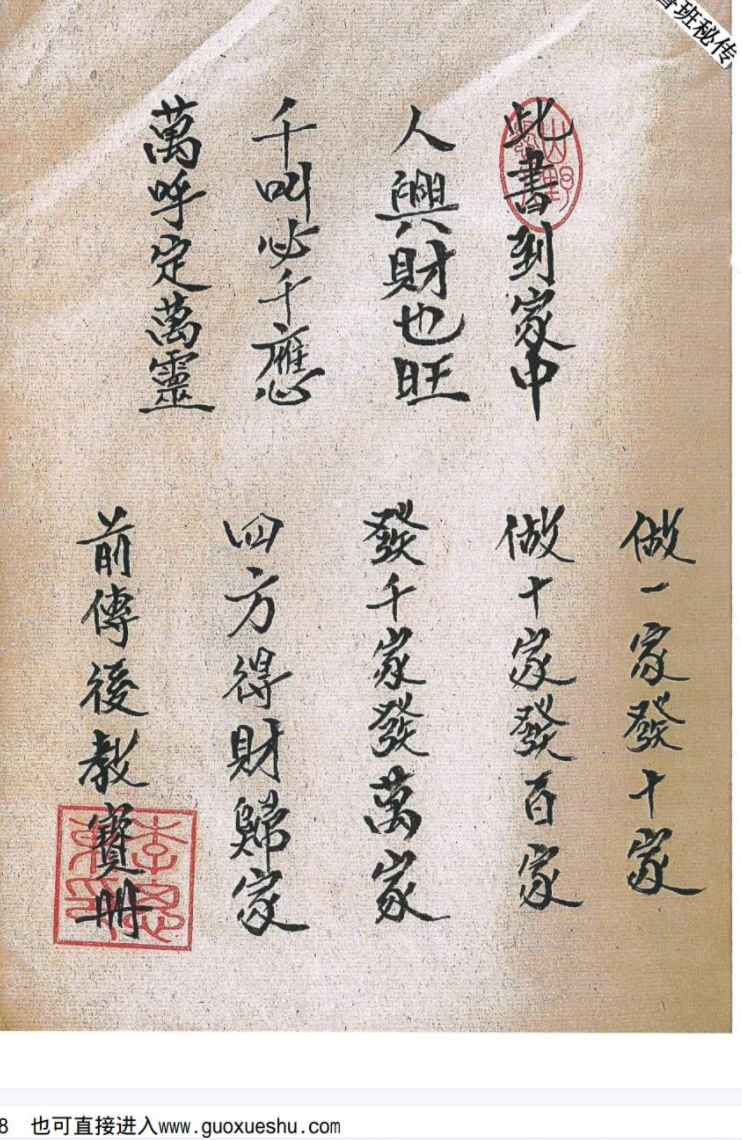 班秘传
此書到家中
人興財也旺
千叫必千應
萬呼定萬靈
做一家發十家
做十家發百家
發千家發萬家
四方得財歸家
前傳後教寶冊
8 也可直接进入www.guoxueshu.com